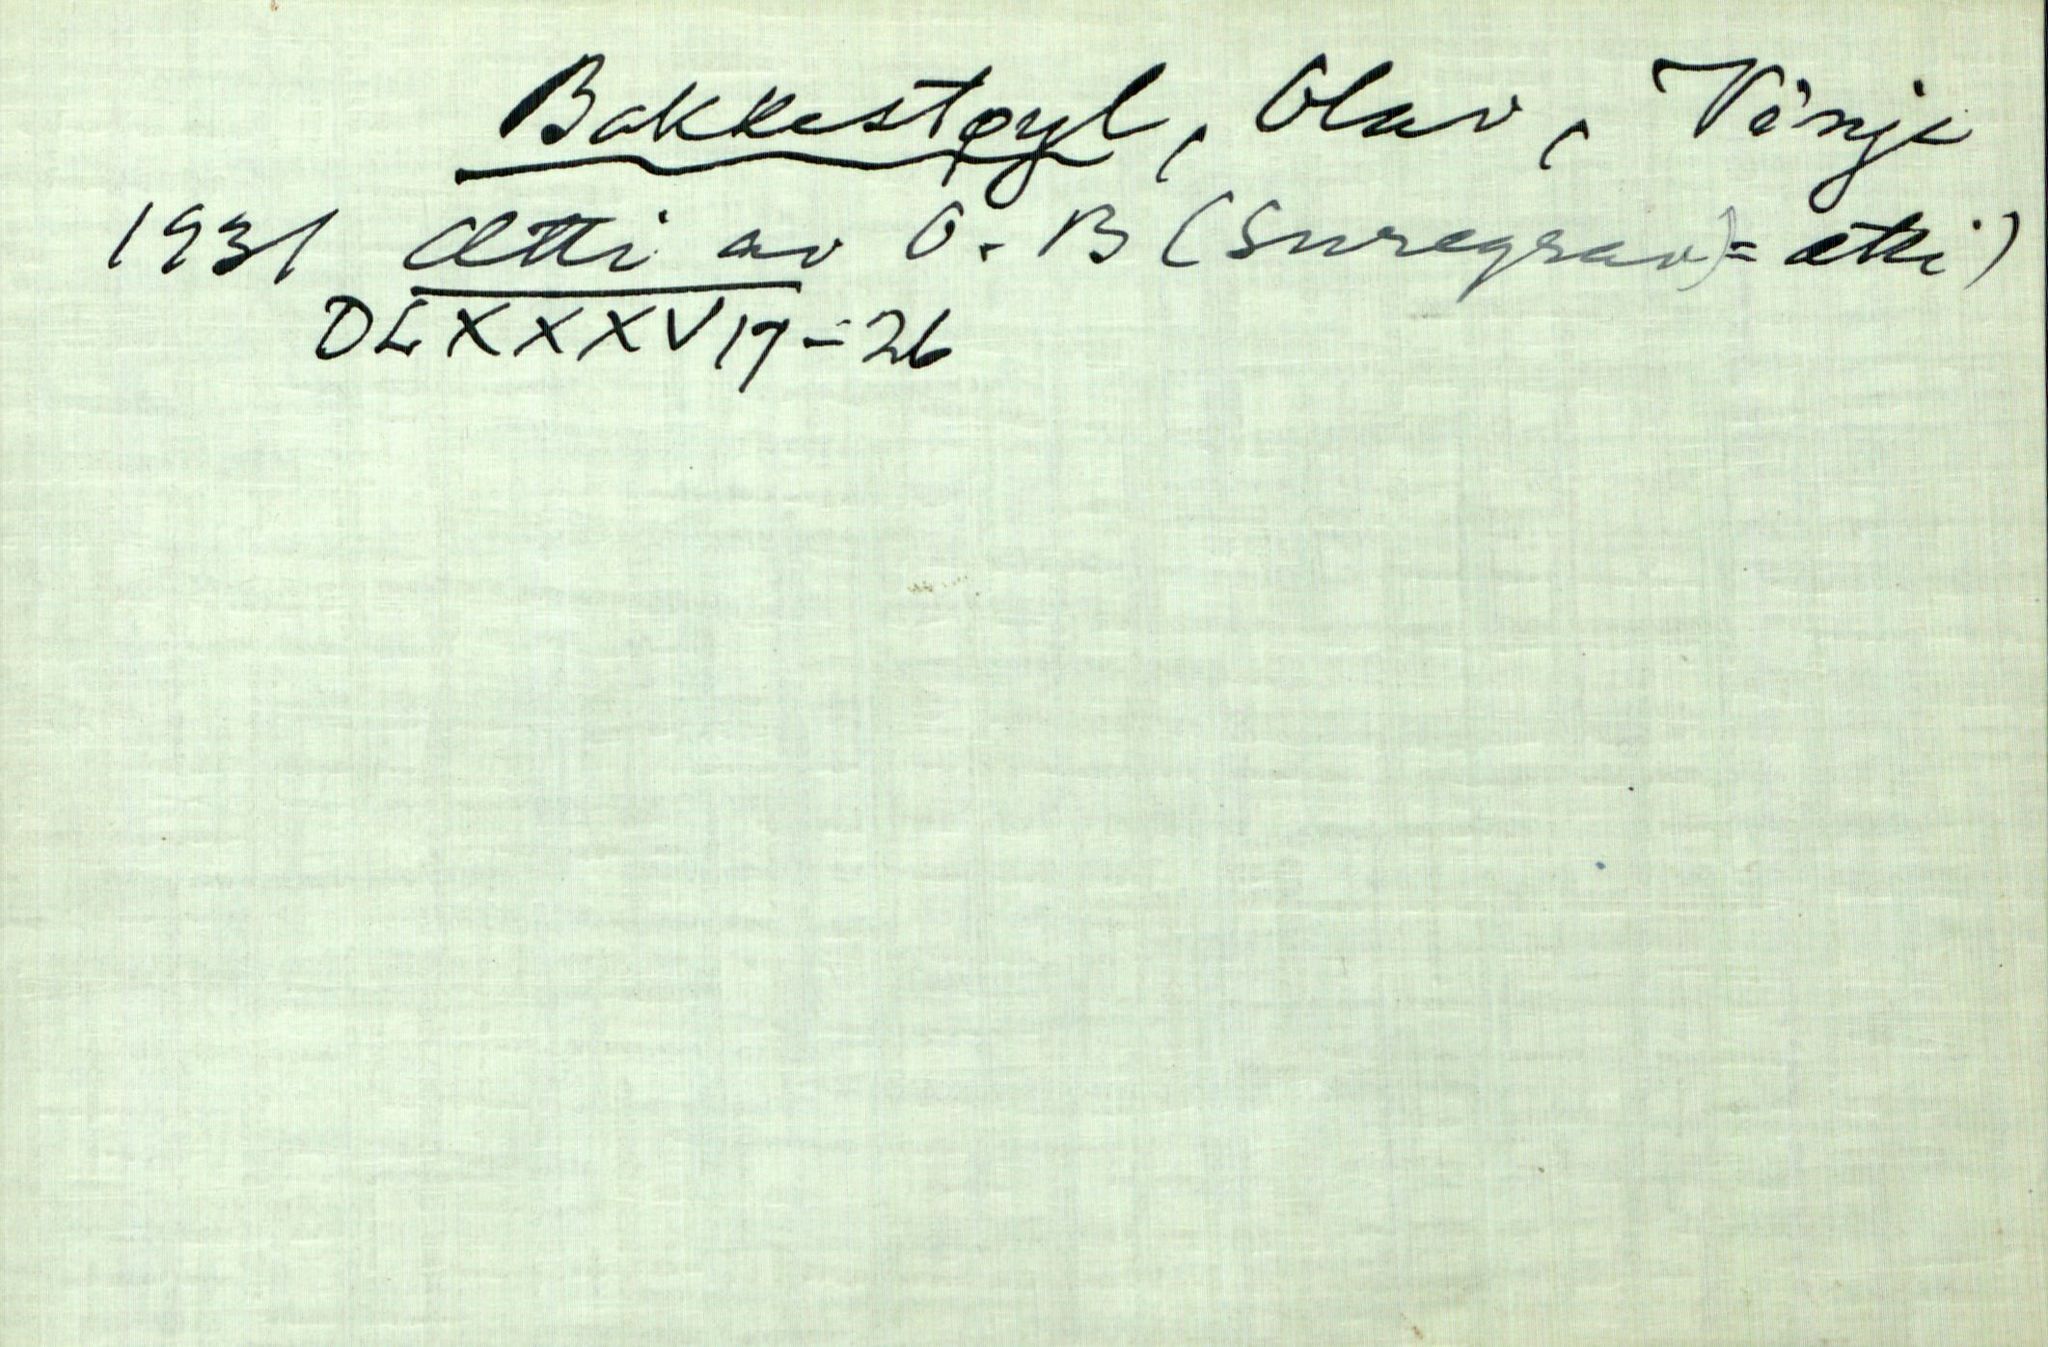 Bakkestøyl, Olav, Vinje
1931 Ætti av O. B (Suregrav)= ætti)
OL XXXV 17-26